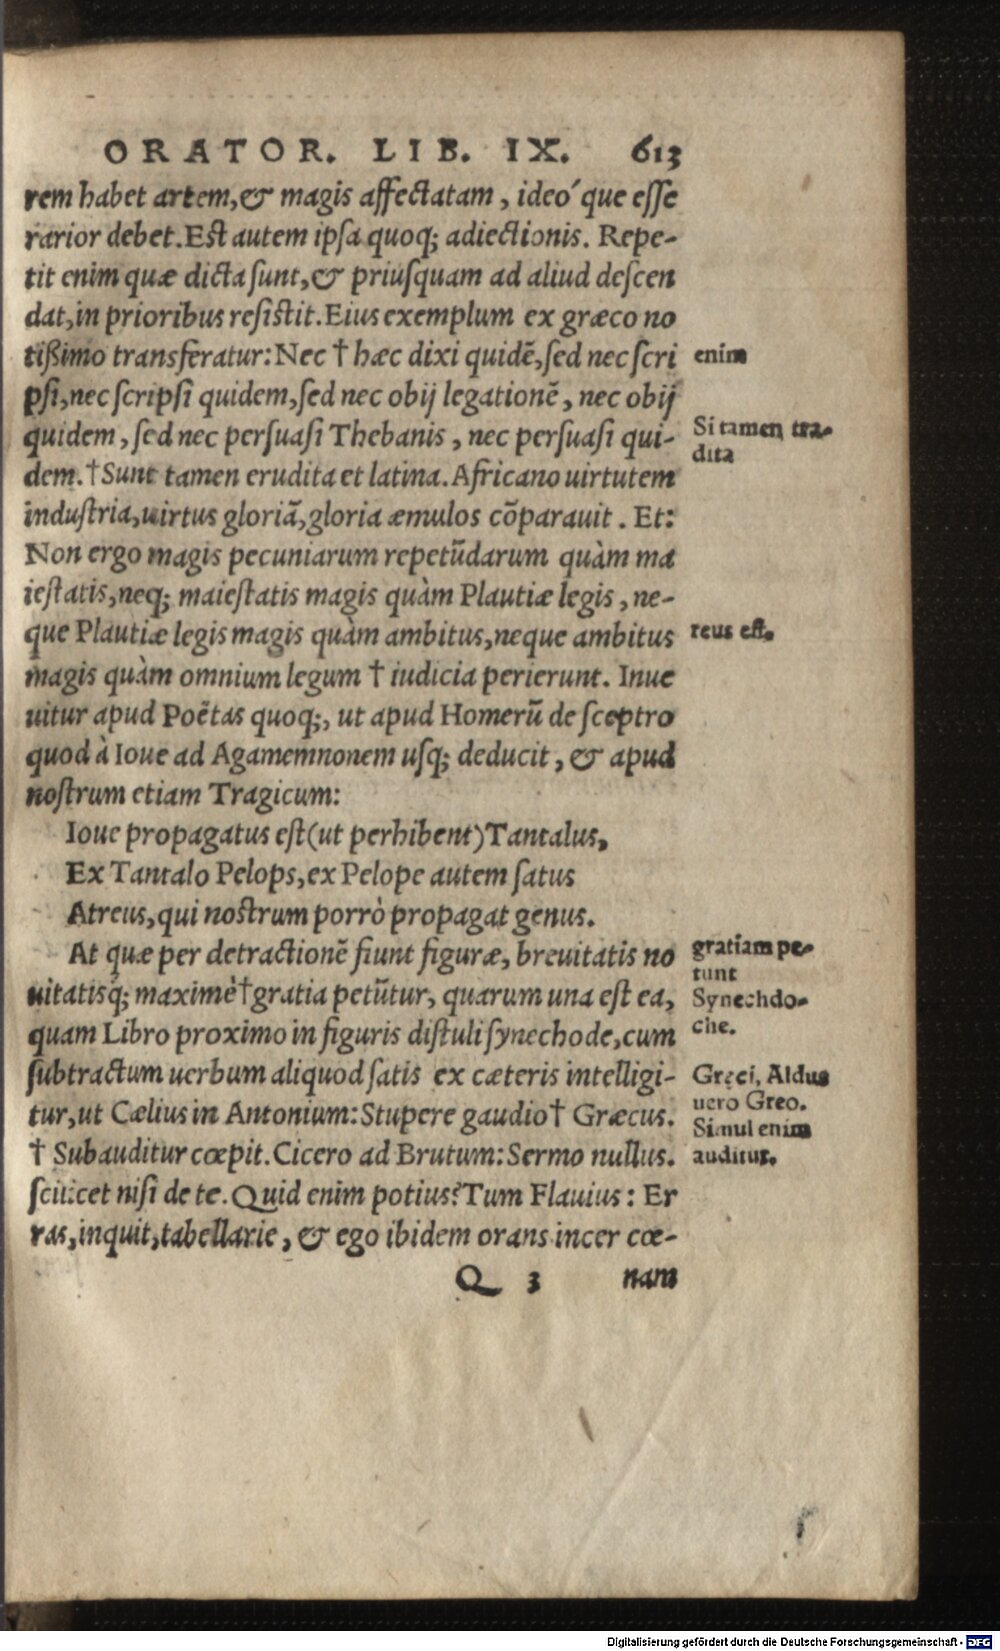 ORATOR. LIB. IX. 613
rem habet artem, & magis affectatam, ideó que esse
rarior debet. Est autem ipsa quoq; adiectionis. Repe-
tit enim quæ dicta sunt, & priusquam ad aliud descen
dat, in prioribus resistit. Eius exemplum ex græco no
tißimo transferatur: Nec † hæc dixi quidē, sed nec scri
psi, nec scripsi quidem, sed nec obij legationē, nec obij
quidem, sed nec persuasi Thebanis, nec persuasi qui-
dem. † Sunt tamen erudita et latina. Africano uirtutem
industria, uirtus gloriā, gloria æmulos cōparauit. Et:
Non ergo magis pecuniarum repetūdarum quàm ma
iestatis, neq; maiestatis magis quàm Plautiæ legis, ne-
que Plautiæ legis magis quàm ambitus, neque ambitus
magis quàm omnium legum † iudicia perierunt. Inue
uitur apud Poëtas quoq;, ut apud Homerū de sceptro
quod à Ioue ad Agamemnonem usq; deducit, & apud
nostrum etiam Tragicum:
Ioue propagatus est (ut perhibent) Tantalus,
Ex Tantalo Pelops, ex Pelope autem satus
Atreus, qui nostrum porrò propagat genus.
At quæ per detractionē fiunt figuræ, breuitatis no
uitatisq́; maximè † gratia petūtur, quarum una est ea,
quam Libro proximo in figuris distuli synechode, cum
subtractum uerbum aliquod satis ex cæteris intelligi-
tur, ut Cælius in Antonium: Stupere gaudio † Græcus.
† Subauditur cœpit. Cicero ad Brutum: Sermo nullus.
scilicet nisi de te. Quid enim potius? Tum Flauius: Er
ras, inquit, tabellarie, & ego ibidem orans incer cœ-
Q 3 nam
enim
Si tamen tra-
dita
reus est.
gratiam pe-
tunt
Synechdo-
che.
Gręci, Aldus
uero Greo.
Simul enim
auditur.
Digitalisierung gefördert durch die Deutsche Forschungsgemeinschaft - DFG